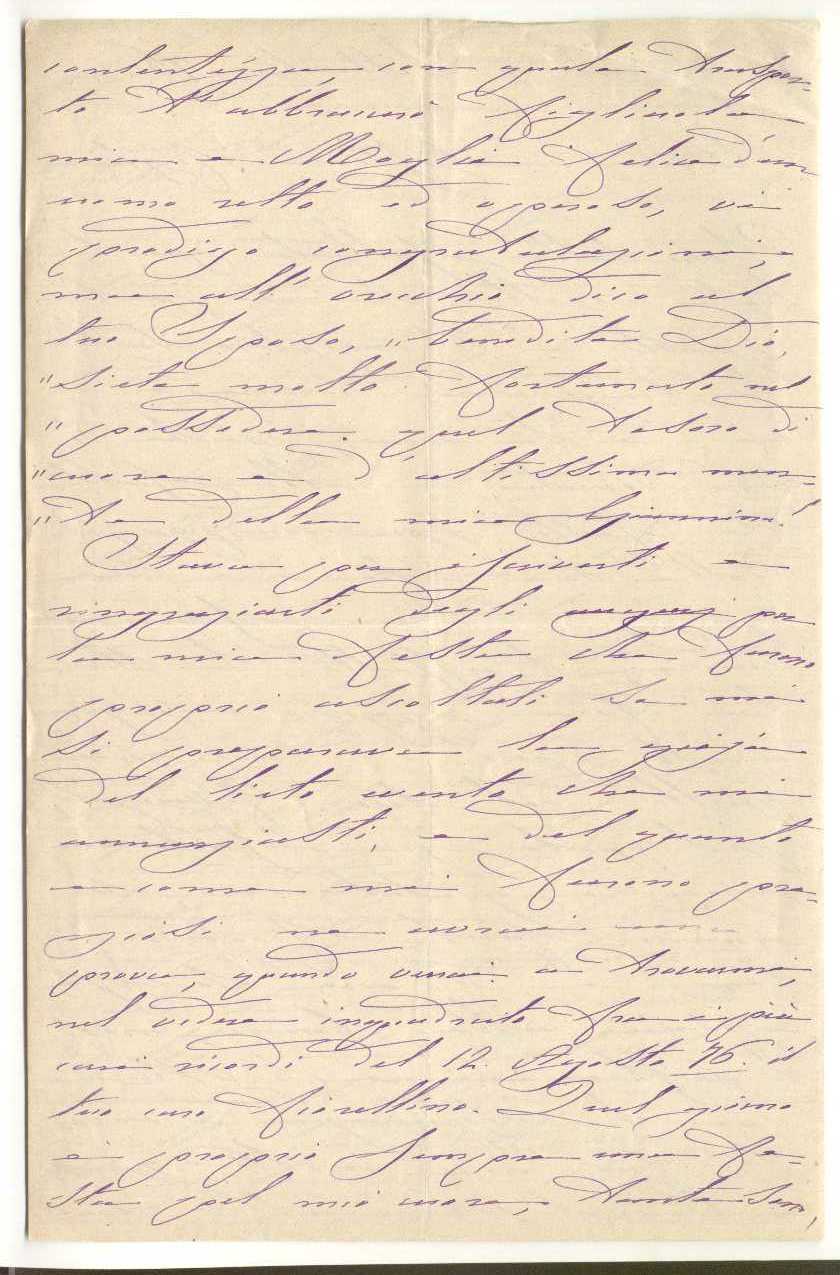 contentezza, con quale traspor-
to t'abbraccerò Figliuola
mia e Moglie felice d'un
uomo retto ed operoso, vi
prodigo congratulazioni,
ma all'orecchio dico al
tuo Sposo, "benedite Dio,
"siete molto fortunato nel
"possedere quel tesoro di
"cuore e d'altissima men-
"te della mia Giannina."
Stava per iscriverti e
ringraziarti degli augurj per
la mia festa che furono
proprio ascoltati se mi
si preparava la gioja
del lieto evento che mi
annunziasti, e del quanto
e come mi furono pre-
ziosi ne avrai una
prova, quando verrai a trovarmi,
nel vedere inquadrato fra i più
cari ricordi del 12. Agosto 76. il
tuo caro fiorellino. Quel giorno
è proprio sempre una fe-
sta pel mio cuore, tante son,